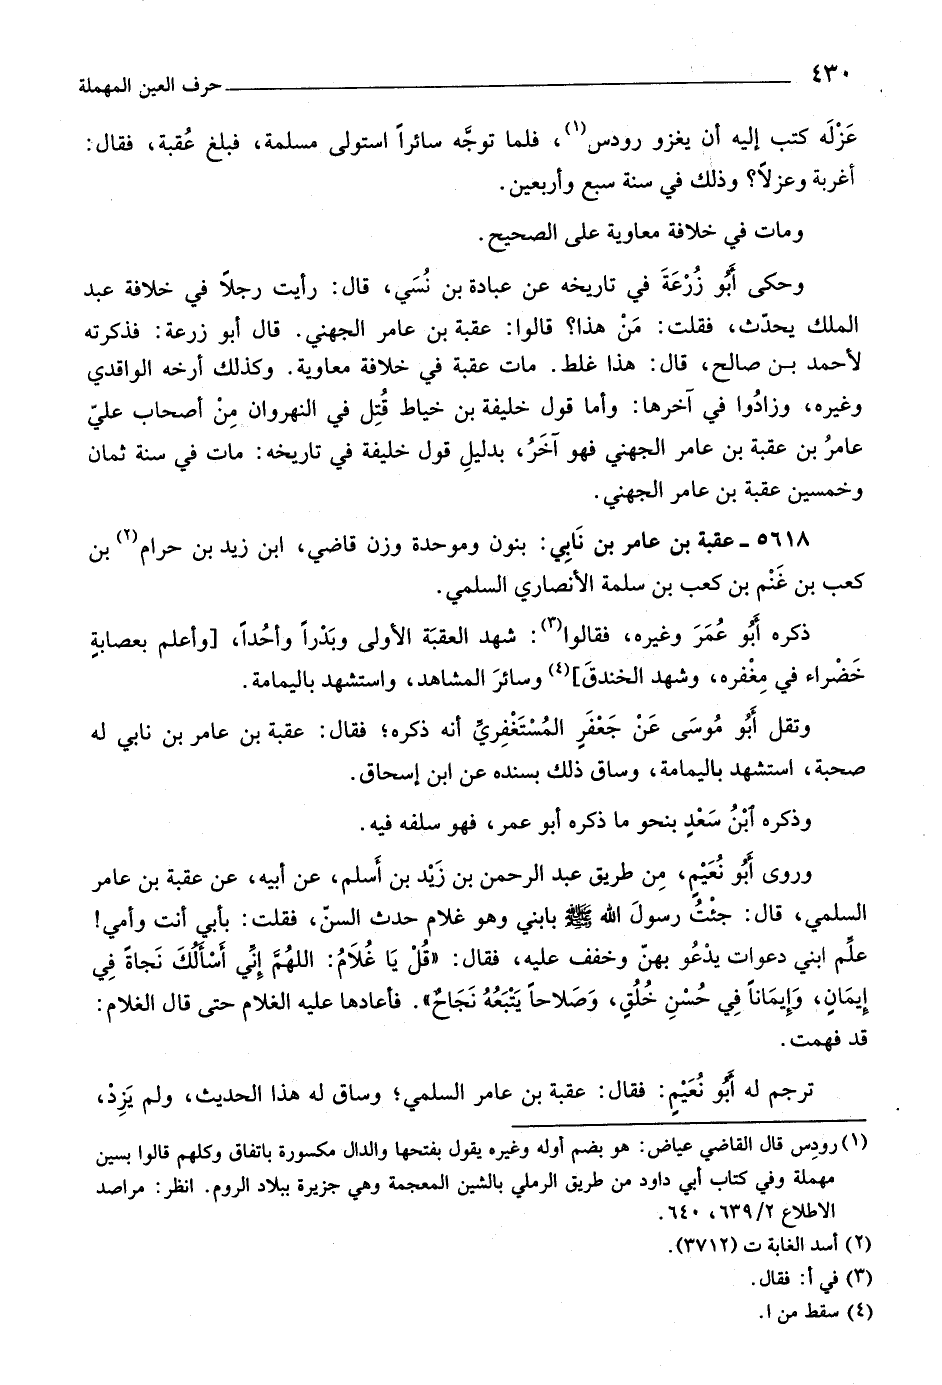 ٤٣٠
حرف العين المهملة
عَزْلَه كتب إليه أن يغزو رودس(١)، فلما توجَّه سائراً استولى مسلمة، فبلغ عُقبة، فقال:
أغربة وعزلاً؟ وذلك في سنة سبع وأربعين.
ومات في خلافة معاوية على الصحيح.
وحكى أَبُو زُرْعَةَ في تاريخه عن عبادة بن نُسَي، قال: رأيت رجلاً في خلافة عبد
الملك يحدّث، فقلت: مَنْ هذا؟ قالوا: عقبة بن عامر الجهني. قال أبو زرعة: فذكرته
لأحمد بـن صالح، قال: هذا غلط. مات عقبة في خلافة معاوية. وكذلك أرخه الواقدي
وغيره، وزادُوا في آخرها: وأما قول خليفة بن خياط قُتِل في النهروان مِنْ أصحاب عليّ
عامرُ بن عقبة بن عامر الجهني فهو آخَرُ، بدليلِ قول خليفة في تاريخه: مات في سنة ثمان
وخمسين عقبة بن عامر الجهني.
٥٦١٨ ـ عقبة بن عامر بن نَابِي: بنون وموحدة وزن قاضي، ابن زيد بن حرام(٢) بن
كعب بن غَنْم بن كعب بن سلمة الأنصاري السلمي.
ذكره أَبُو عُمَرَ وغيره، فقالوا(٣): شهد العقبَة الأولى وبَدْراً وأحُداً، [وأعلم بعصابةٍ
خَضْراء في مِغْفره، وشهد الخندقَ](٤) وسائرَ المشاهد، واستشهد باليمامة.
ونقل أَبُو مُوسَى عَنْ جَعْفَرٍ المُسْتَغْفِرِيِّ أنه ذكره؛ فقال: عقبة بن عامر بن نابي له
صحبة، استشهد باليمامة، وساق ذلك بسنده عن ابن إسحاق.
وذكره ٱبْنُ سَعْدٍ بنحو ما ذكره أبو عمر، فهو سلفه فيه.
وروى أَبُو نُعَيْمٍ، مِن طريق عبد الرحمن بن زَيْد بن أَسلم، عن أبيه، عن عقبة بن عامر
السلمي، قال: جئْتُ رسولَ الله ﷺ بابني وهو غلام حدث السنّ، فقلت: بأبي أنت وأمي!
علِّم ابني دعوات يدْعُو بهنّ وخفف عليه، فقال: «قُلْ يَا غُلَامُ: اللهُمَّ إِنِّي أَسْأَلُكَ نَجاةً فِي
إِيمَانٍ، وَإِيمَاناً فِي حُسْنِ خُلُقٍ، وَصَلاحاً يَتْبَعُهُ نَجَاحٌ». فأعادها عليه الغلام حتى قال الغلام:
قد فهمت.
ترجم له أَبُو نُعَيْمٍ: فقال: عقبة بن عامر السلمي؛ وساق له هذا الحديث، ولم يَزِدْ،
(١) رودِس قال القاضي عياض: هو بضم أوله وغيره يقول بفتحها والدال مكسورة باتفاق وكلهم قالوا بسين
مهملة وفي كتاب أبي داود من طريق الرملي بالشين المعجمة وهي جزيرة ببلاد الروم. انظر: مراصد
الاطلاع ٢/٦٣٩، ٦٤٠.
(٢) أسد الغابة ت (٣٧١٢).
(٣) في أ: فقال.
(٤) سقط من ا.